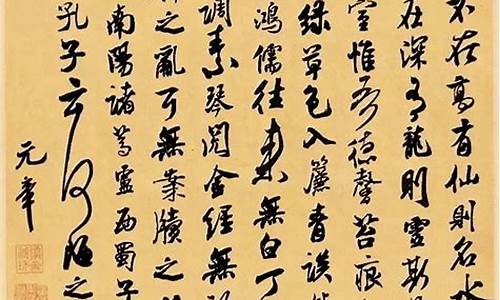 不在高有仙則名水
在深有龍則靈斯
室惟吾德馨苔痕
綠草色入簾青談
鴻儒往來無白丁
調素琴閱金經無
之亂耳無案牘之
南陽諸葛廬西蜀子
孔子云何陋之
元章